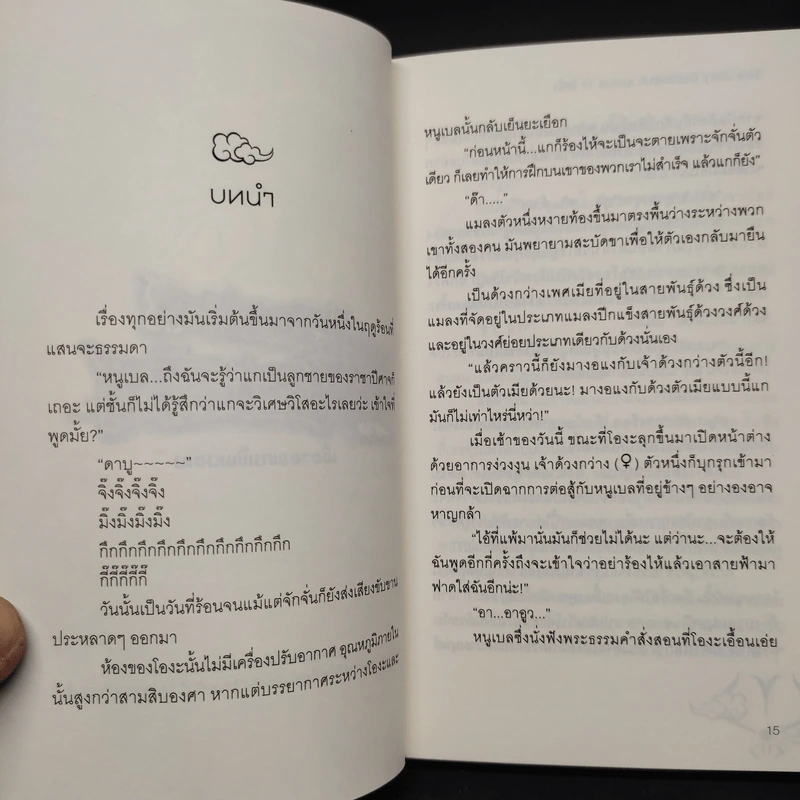 บทนำ
เรื่องทุกอย่างมันเริ่มต้นขึ้นมาจากวันหนึ่งในฤดูร้อนที่
แสนจะธรรมดา
“หนูเบล...ถึงฉันจะรู้ว่าแกเป็นลูกชายของราชาปีศาจก็
เถอะ แต่ชั้นก็ไม่ได้รู้สึกว่าแกจะวิเศษวิโสอะไรเลยว่ะ เข้าใจที่
พูดมั้ย?”
“ดาบู~~~~~”
จิ๊งจิ๊งจิ๊งจิ๊ง
มิ๊งมิ๊งมิ๊งมิ๊ง
กึกกึกกึกกึกกึกกึกกึกกึกกึก
กี๊กี๊กี๊กี๊กี๊
วันนั้นเป็นวันที่ร้อนจนแม้แต่จักจั่นก็ยังส่งเสียงขับขาน
ประหลาดๆ ออกมา
ห้องของโองะนั้นไม่มีเครื่องปรับอากาศ อุณหภูมิภายใน
นั้นสูงกว่าสามสิบองศา หากแต่บรรยากาศระหว่างโองะและ
หนูเบลนั้นกลับเย็นยะเยือก
“ก่อนหน้านี้...แกก็ร้องไห้จะเป็นจะตายเพราะจักจั่นตัว
เดียว ก็เลยทำให้การฝึกบนเขาของพวกเราไม่สำเร็จ แล้วแกก็ยัง”
“ด๊า.....”
แมลงตัวหนึ่งหงายท้องขึ้นมาตรงพื้นว่างระหว่างพวก
เขาทั้งสองคน มันพยายามสะบัดขาเพื่อให้ตัวเองกลับมายืน
ได้อีกครั้ง
เป็นด้วงกว่างเพศเมียที่อยู่ในสายพันธุ์ด้วง ซึ่งเป็น
แมลงที่จัดอยู่ในประเภทแมลงปีกแข็งสายพันธุ์ด้วงวงศ์ด้วง
และอยู่ในวงศ์ย่อยประเภทเดียวกับด้วงนั่นเอง
“แล้วคราวนี้ก็ยังมางอแงกับเจ้าด้วงกว่างตัวนี้อีก!
แล้วยังเป็นตัวเมียด้วยนะ! มางอแงกับด้วงตัวเมียแบบนี้แก
มันก็ไม่เท่าไหร่นี่หว่า!”
เมื่อเช้าของวันนี้ ขณะที่โองะลุกขึ้นมาเปิดหน้าต่าง
ด้วยอาการง่วงงุน เจ้าด้วงกว่าง (♀) ตัวหนึ่งก็บุกรุกเข้ามา
ก่อนที่จะเปิดฉากการต่อสู้กับหนูเบลที่อยู่ข้างๆ อย่างองอาจ
หาญกล้า
“ไอ้ที่แพ้มานั่นมันก็ช่วยไม่ได้นะ แต่ว่านะ...จะต้องให้
ฉันพูดอีกกี่ครั้งถึงจะเข้าใจว่าอย่าร้องไห้แล้วเอาสายฟ้ามา
ฟาดใส่ฉันอีกน่ะ!”
“อา...อาอูว...”
หนูเบลซึ่งนั่งฟังพระธรรมคำสั่งสอนที่โองะเอื้อนเอ่ย
15